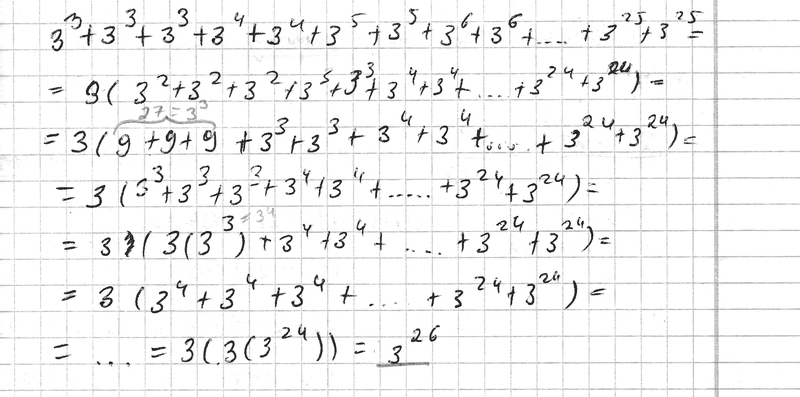 3³+3³+3³+3⁴+3⁴+3⁵+3⁵+3⁶+3⁶+....+3²⁵+3²⁵=
= 3(3²+3²+3²+3³+3³+3⁴+3⁴+...+3²⁴+3²⁴)=
27=3³
= 3(9+9+9+3³+3³+3⁴+3⁴+....+3²⁴+3²⁴)=
= 3(3³+3³+3³+3⁴+3⁴+.....+3²⁴+3²⁴)=
=3⁴
= 3(3(3³)+3⁴+3⁴+....+3²⁴+3²⁴)=
= 3(3⁴+3⁴+3⁴+....+3²⁴+3²⁴)=
= ... = 3(3(3²⁴))=3²⁶